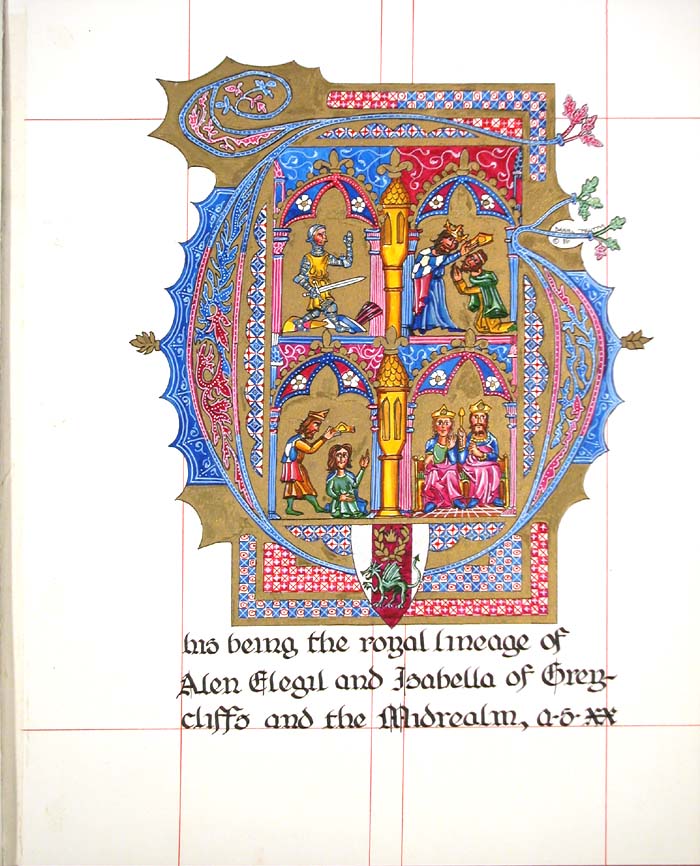 his being the royal lineage of
Alen Elegil and Isabella of Grey-
cliffs and the Midrealm, a·s·xx